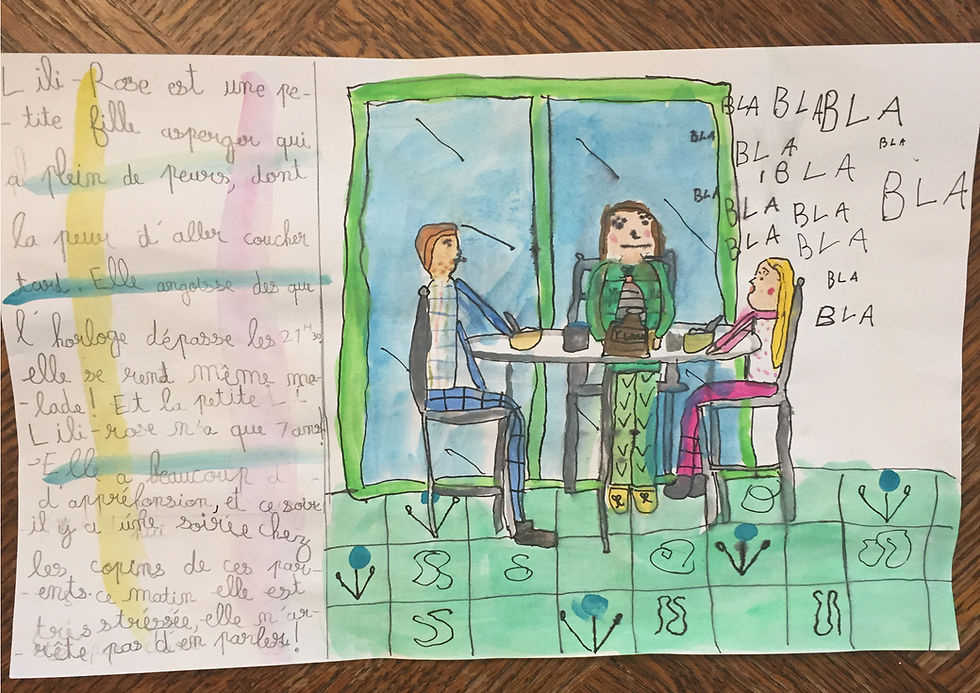 Lili-Rose est une pe-
-tite fille asperger qui
a plein de peurs, dont
la peur d'aller coucher
tard. Elle angoisse des que
l'horloge dépasse les 21H30
elle se rend même ma-
-lade! Et la petite L!
Lili-rose n'a que 7 ans!
Elle a beaucoup d
d'appréfonsion, et ce soir
il y a une soirée chez
les copins de ces par-
-ents. ce matin elle est
très stréssée, elle n'ar-
rête pas d'en parler!
BLA BLA BLA
BLA
BLA BLA
BLA
BLA
BLA
BLA BLA
BLA BLA
BLA
BLA
BLA